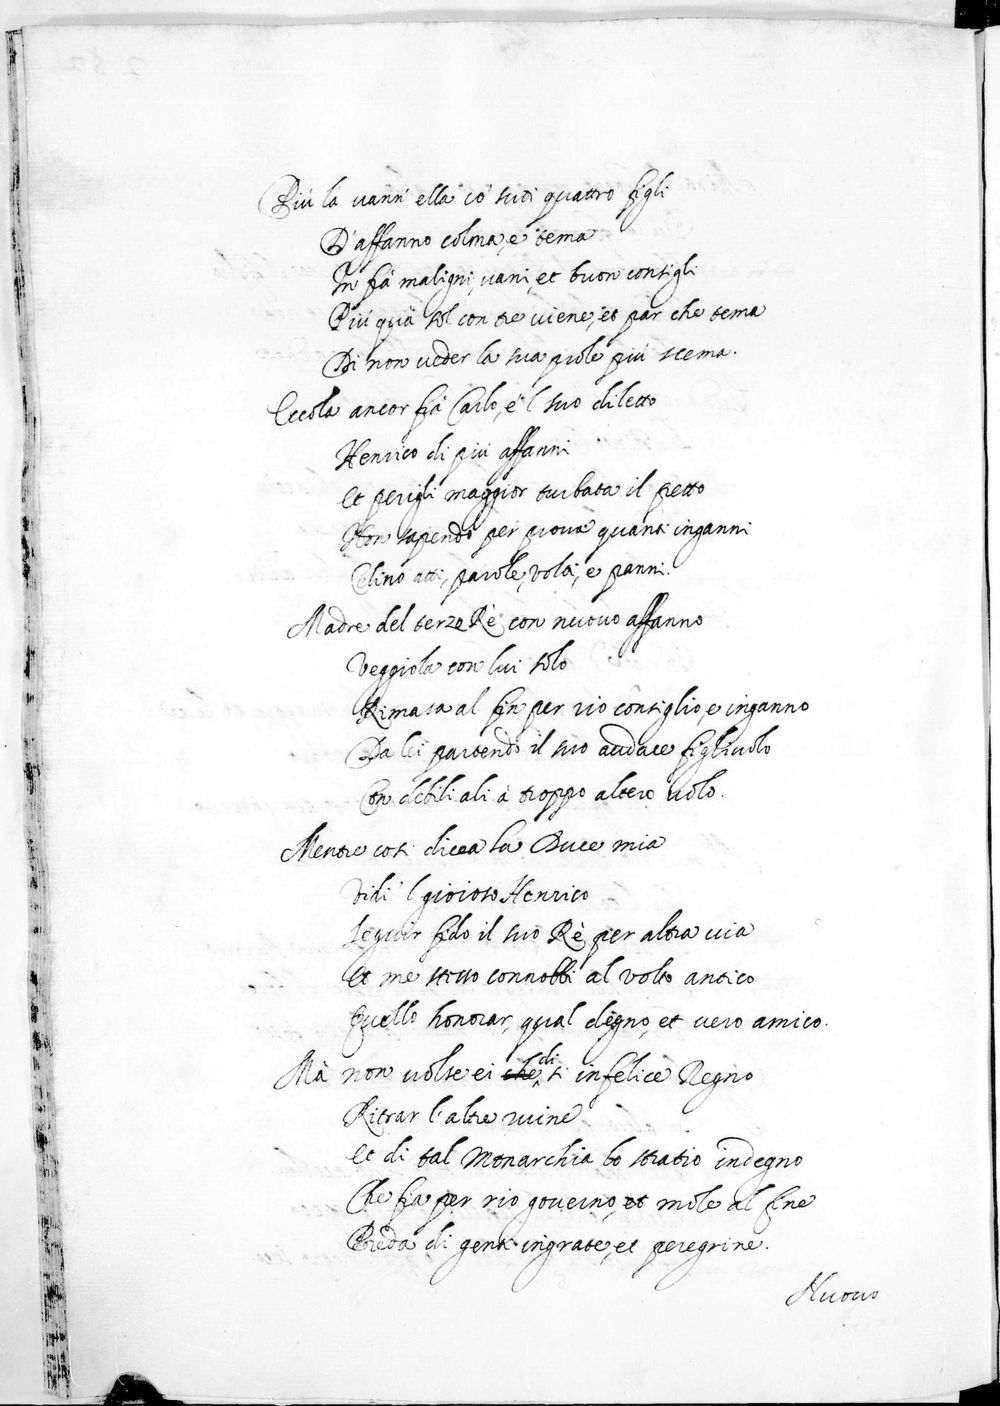 Più là vann' ella co' suoi quattro figli
D'affanno colma, e tema
In frà maligni, vani, et buon consigli
Più quà sol con tre viene, et par che tema
Di non veder la sua prole più scema.
Eccola ancor frà Carlo, e 'l suo diletto
Henrico di più affanni
Et perigli maggior turbata il petto
Non sapendo per prova quanti inganni
Celino atti, parole, volti, e panni.
Madre del terzo Rè con nuovo affanno
Veggiola con lui solo
Rimasa al fin per rio consiglio, e inganno
Da lei partendo il suo audace figliuolo
Con debili ali à troppo altero volo.
Mentre così dicea la Duce mia
Vidi 'l gioioso Henrico
Seguir fido il suo Rè per altra via
Et me stesso connobbi al volto antico
Quello honorar, qual degno, et vero amico.
Mà non volse ei che di sì infelice Regno
Ritrar l'altre ruine
Et di tal Monarchia lo stratio indegno
Che fia per rio governo, et mole al fine
Preda di genti ingrate, et peregrine.
Nuovo